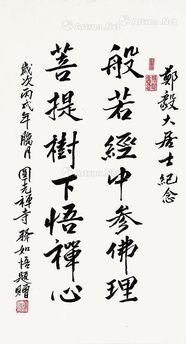 鄭毅大居士紀念
般若經中參佛理
菩提樹下悟禪心
歲次丙戌年臘月 圓光禪寺 釋如悟題贈